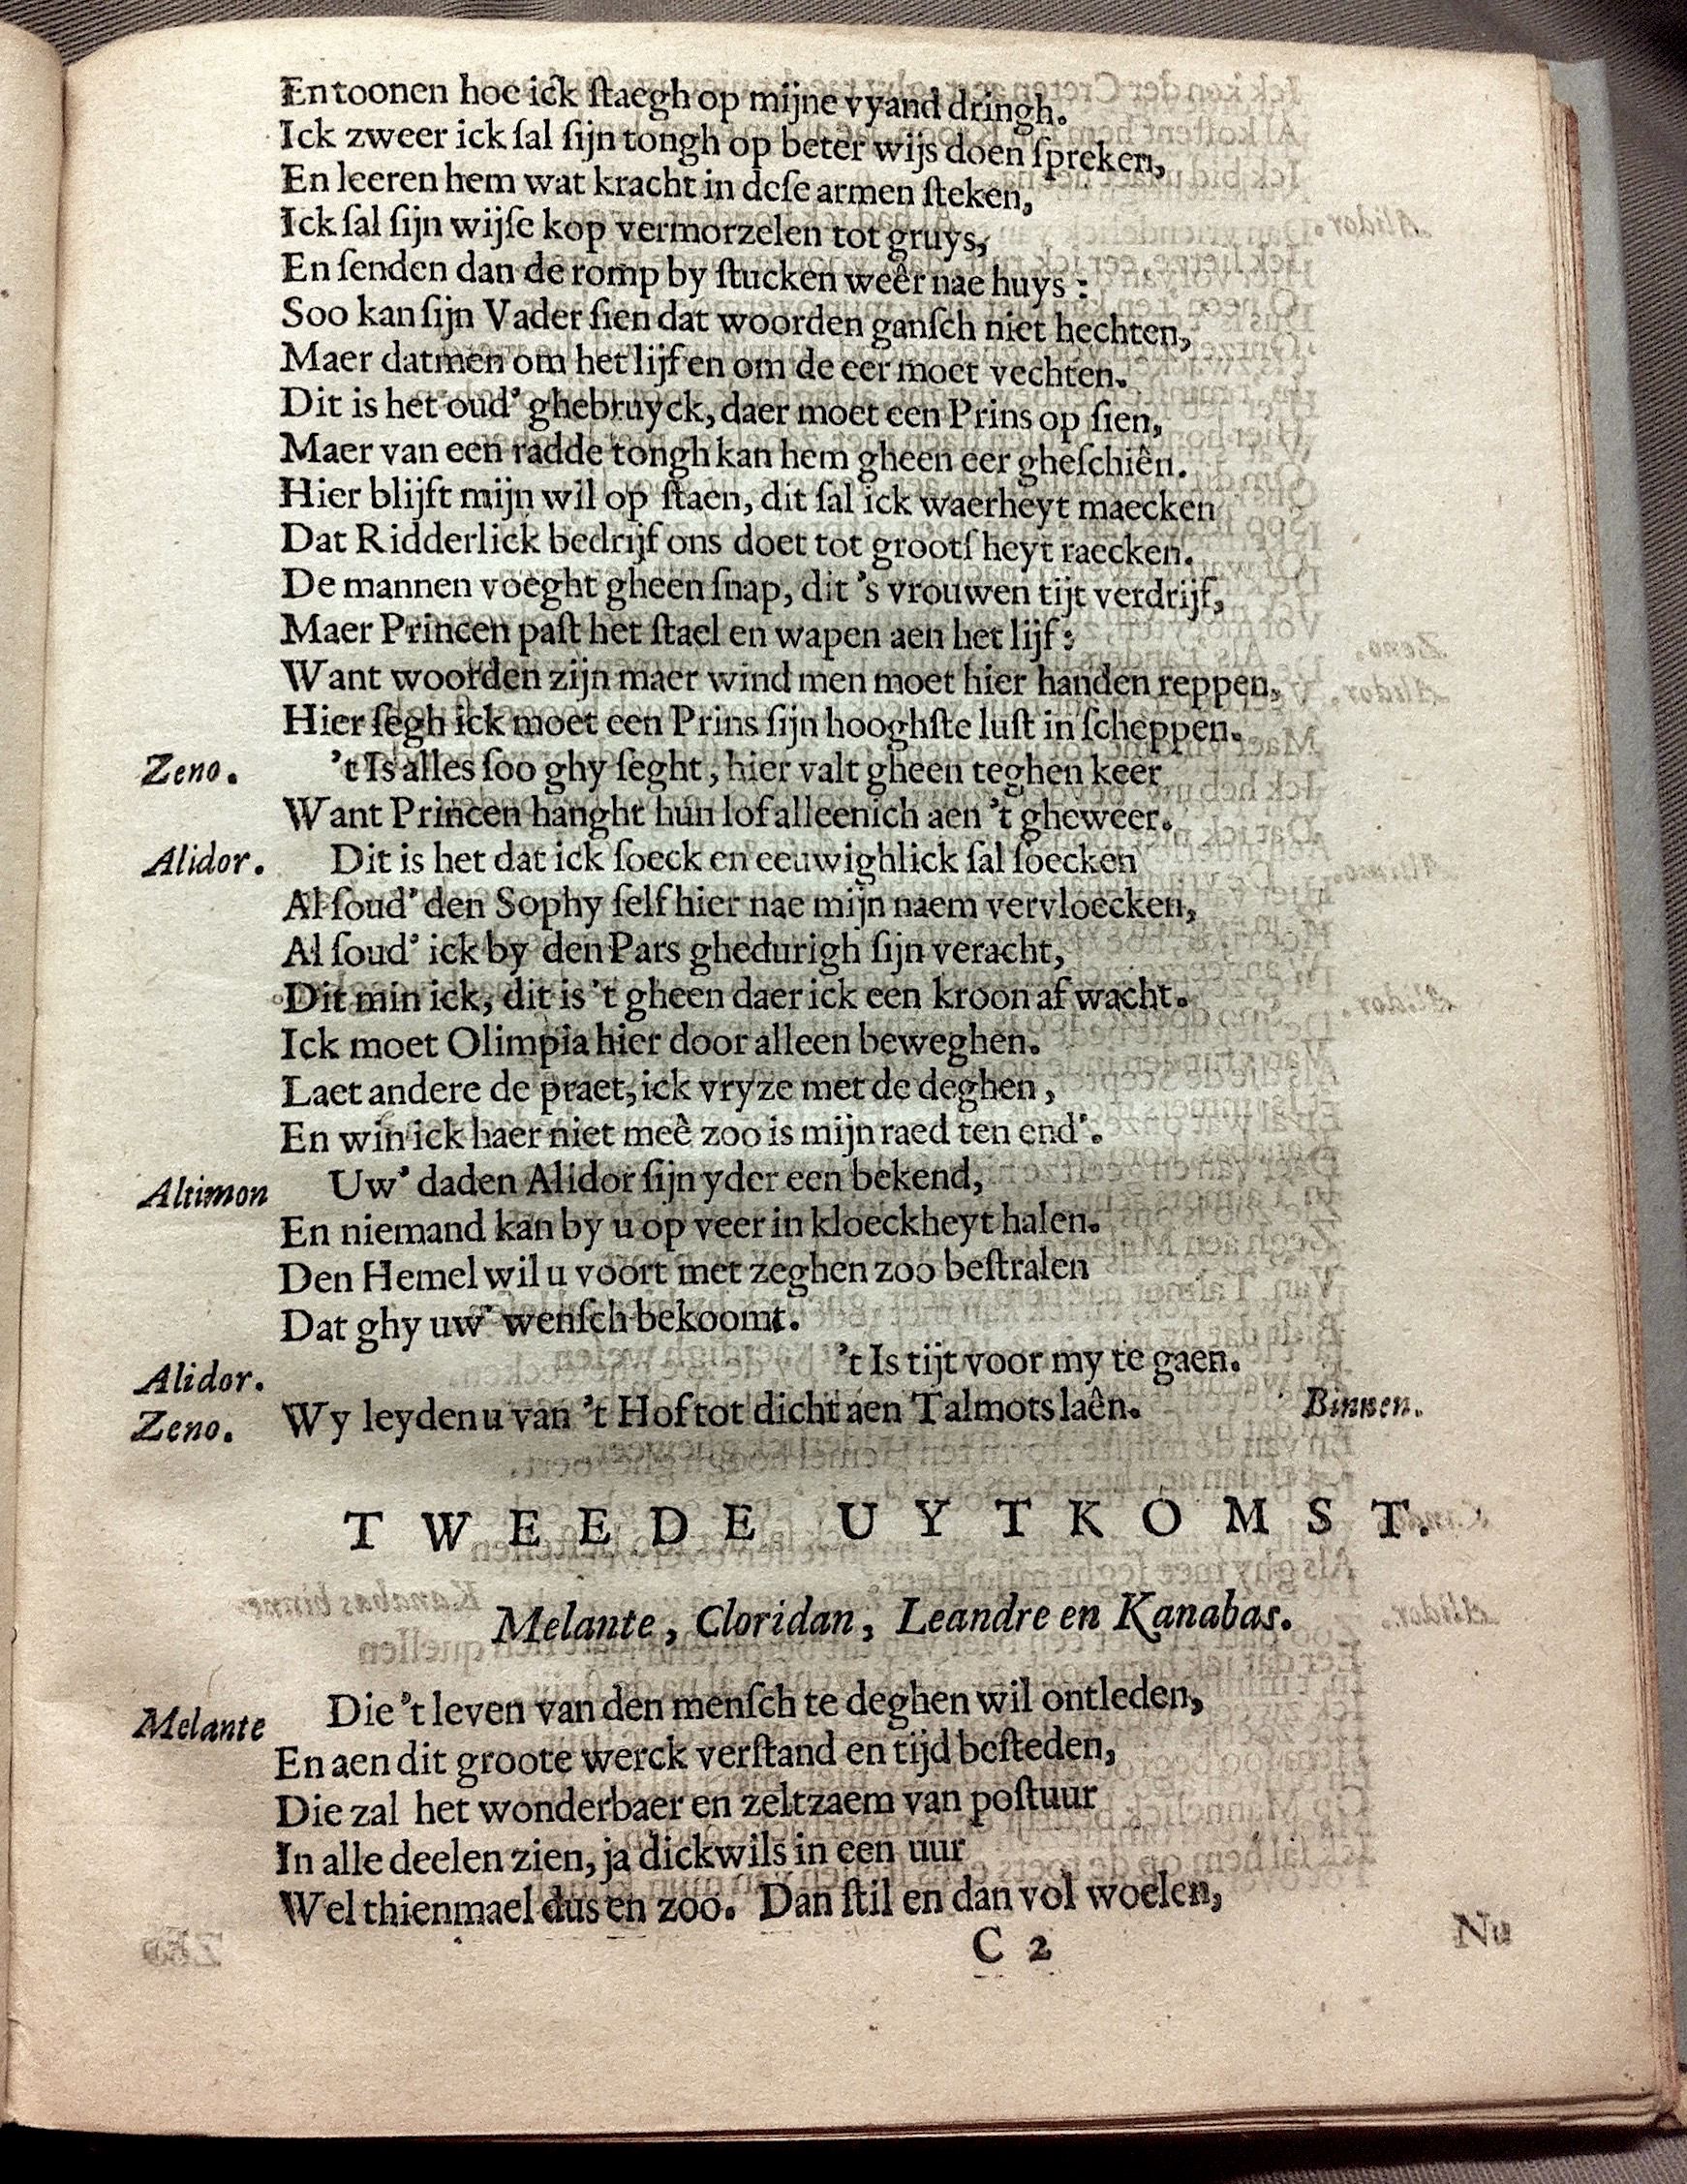 En toonen hoe ick ſtaegh op mijne vyand dringh.
Ick zweer ick ſal ſijn tongh op beter wijs doen ſpreken,
En leeren hem wat kracht in deſe armen ſteken,
Ick ſal ſijn wijſe kop vermorzelen tot gruys,
En ſenden dan de romp by ſtucken weêr nae huys:
Soo kan ſijn Vader ſien dat woorden ganſch niet hechten,
Maer datmen om het lijf en om de eer moet vechten.
Dit is het oud' ghebruyck, daer moet een Prins op ſien,
Maer van een radde tongh kan hem gheen eer gheſchiên.
Hier blijft mijn wil op ſtaen, dit ſal ick waerheyt maecken
Dat Ridderlick bedrijf ons doet tot grootſ heyt raecken.
De mannen voeght gheen ſnap, dit 's vrouwen tijt verdrijf,
Maer Princen paſt het ſtael en wapen aen het lijf:
Want woorden zijn maer wind men moet hier handen reppen,
Hier ſegh ick moet een Prins ſijn hooghſte luſt in ſcheppen.
Zeno. 't Is alles ſoo ghy ſeght, hier valt gheen teghen keer
Want Princen hanght hun lof alleenich aen 't gheweer.
Alidor. Dit is het dat ick ſoeck en eeuwighlick ſal ſoecken
Al ſoud' den Sophy ſelf hier nae mijn naem vervloecken,
Al ſoud' ick by den Pars ghedurigh ſijn veracht,
Dit min ick, dit is 't gheen daer ick een kroon af wacht.
Ick moet Olimpia hier door alleen beweghen.
Laet andere de praet, ick vryze met de deghen,
En win ick haer niet meê zoo is mijn raed ten end'.
Altimon Uw' daden Alidor ſijn yder een bekend,
En niemand kan by u op veer in kloeckheyt halen.
Den Hemel wil u voort met zeghen zoo beſtralen
Dat ghy uw' wenſch bekoomt.
Alidor. 't Is tijt voor my te gaen.
Zeno. Wy leyden u van 't Hof tot dicht aen Talmots laên. Binnen.
TWEEDE UYTKOMST.
Melante, Cloridan, Leandre en Kanabas.
Melante Die 't leven van den menſch te deghen wil ontleden,
En aen dit groote werck verſtand en tijd beſteden,
Die zal het wonderbaer en zeltzaem van poſtuur
In alle deelen zien, ja dickwils in een uur
Wel thienmael dus en zoo. Dan ſtil en dan vol woelen,
C 2 Nu